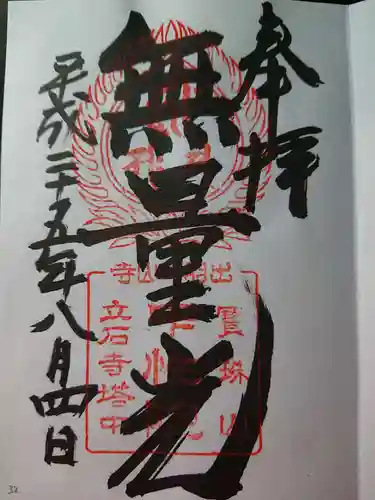 奉拝
無量光
平成二十五年八月四日
出羽國山寺
寳珠山
立石寺塔中
32